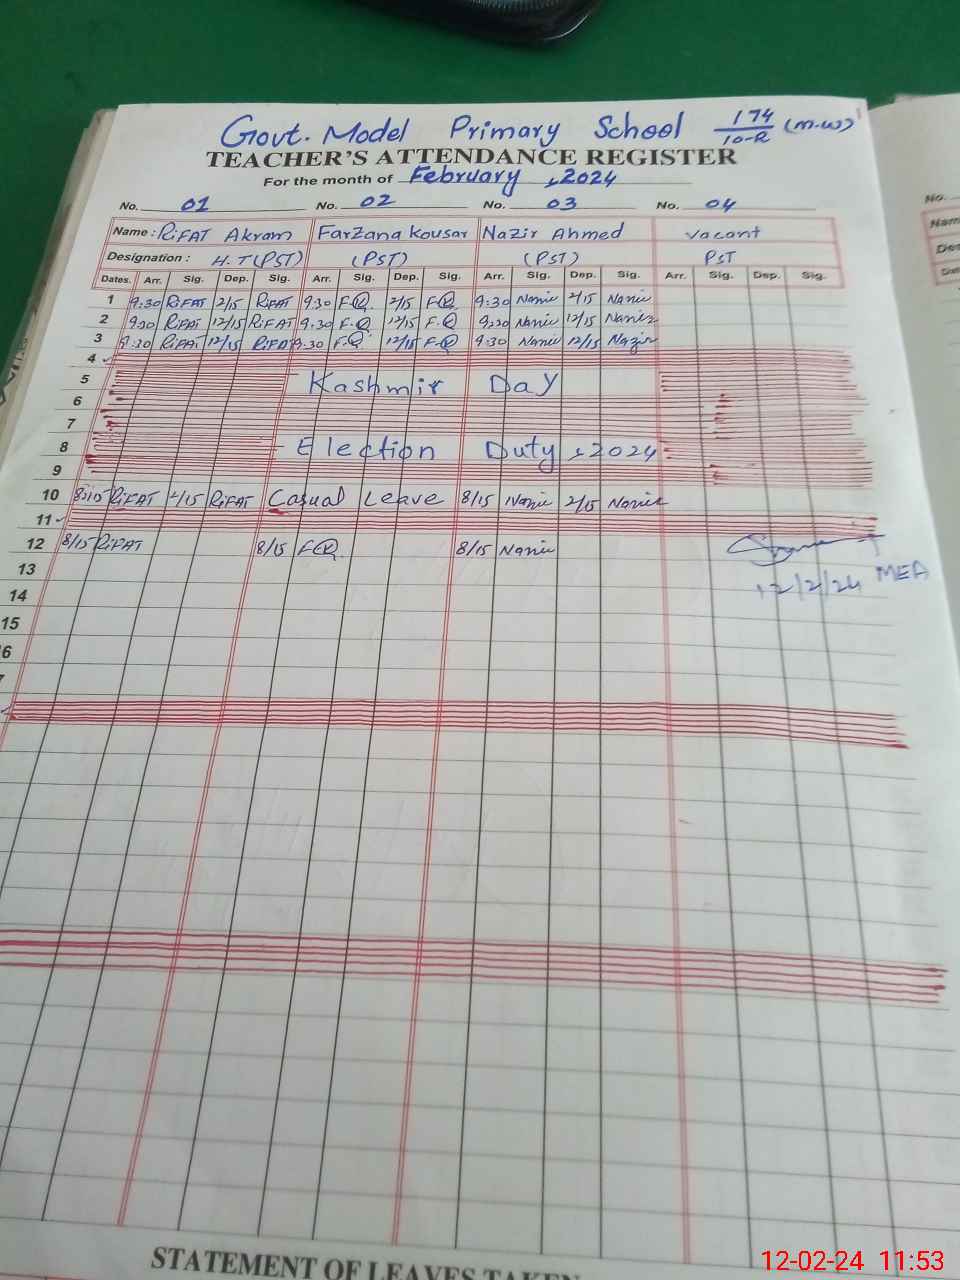 Govt. Model Primary School 174/10-R (M.W)
TEACHER'S ATTENDANCE REGISTER
For the month of February, 2024
No. 01 No. 02 No. 03 No. 04
Name: RiFAT Akram FarZana Kousar Nazir Ahmed Vacant
Designation: H.T (PST) (PST) (PST) PST
Dates. Arr. Sig. Dep. Sig. Arr. Sig. Dep. Sig. Arr. Sig. Dep. Sig. Arr. Sig. Dep. Sig.
1 9:30 RiFAT 2/15 RiFAT 9:30 F.Q 2/15 F.Q 9:30 2/15
2 9:30 RiFAT 12/15 RiFAT 9:30 F.Q 12/15 F.Q 9:30 12/15
3 9:30 RiFAT 12/15 RiFAT 9:30 F.Q 12/15 F.Q 9:30 12/15 Nazir
4
5 Kashmir Day
6
7
8 Election Duty, 2024
9
10 8:15 RiFAT 2/15 RiFAT Casual Leave 8/15 2/15
11
12 8/15 RiFAT 8/15 F.Q 8/15
13 MEA
14 12/2/24
15
6
7
STATEMENT OF LEAVES TAKEN
12-02-24 11:53